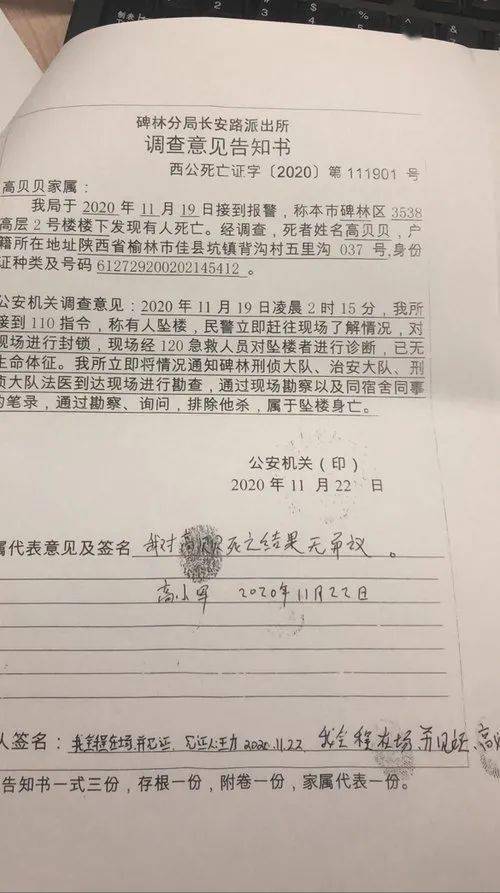 碑林分局长安路派出所
调查意见告知书
西公死亡证字〔2020〕第 111901 号
高贝贝家属：
我局于 2020 年 11 月 19 日接到报警，称本市碑林区 3538
高层 2 号楼楼下发现有人死亡。经调查，死者姓名高贝贝，户
籍所在地址陕西省榆林市佳县坑镇背沟村五里沟 037 号,身份
证种类及号码 612729200202145412。
公安机关调查意见：2020 年 11 月 19 日凌晨 2 时 15 分，我所
接到 110 指令，称有人坠楼，民警立即赶往现场了解情况，对
现场进行封锁，现场经 120 急救人员对坠楼者进行诊断，已无
生命体征。我所立即将情况通知碑林刑侦大队、治安大队、刑
侦大队法医到达现场进行勘查，通过现场勘察以及同宿舍同事
的笔录，通过勘察、询问，排除他杀，属于坠楼身亡。
公安机关（印）
2020 年 11 月 22 日
属代表意见及签名 我对高贝贝死亡结果无异议。
高小军 2020年11月22日
人签名：我全程在场并见证，见证人王力 2020.11.22 我全程在场并见证 高
告知书一式三份，存根一份，附卷一份，家属代表一份。